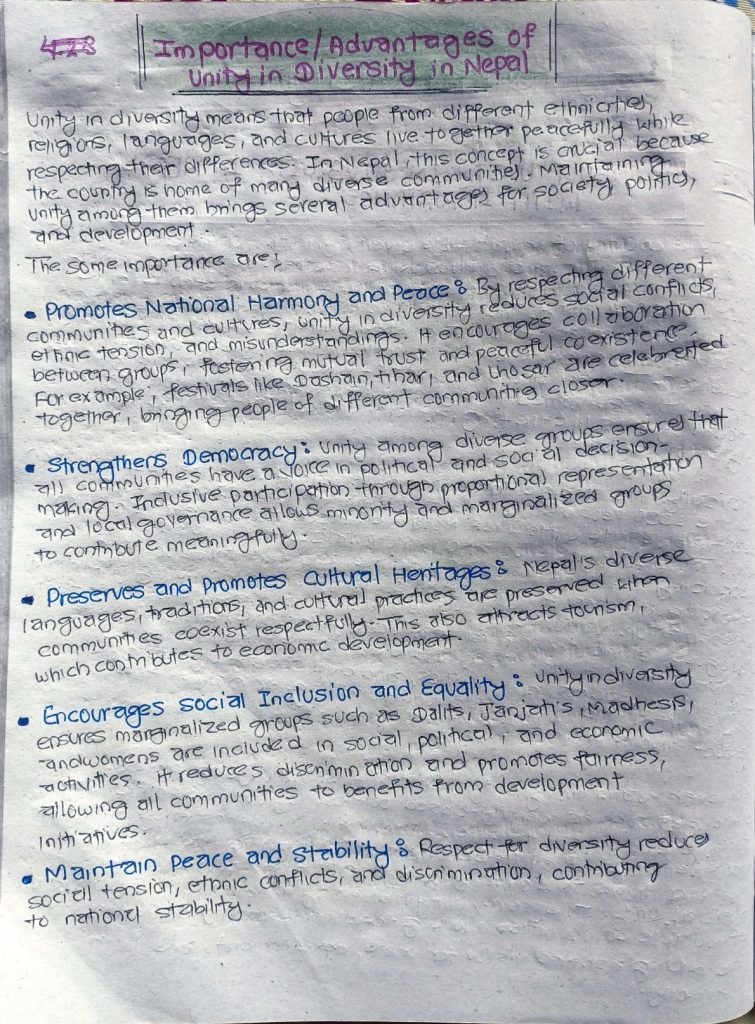 Importance/Advantages of
Unity in Diversity in Nepal
Unity in diversity means that people from different ethnicities,
religions, languages, and cultures live together peacefully while
respecting their differences. In Nepal, this concept is crucial because
the country is home of many diverse communities. Maintaining
unity among them brings several advantages for society politics,
and development.
The some importance are:
• Promotes National Harmony and Peace: By respecting different
communities and cultures, unity in diversity reduces social conflicts,
ethnic tension, and misunderstandings. It encourages collaboration
between groups, fostening mutual trust and peaceful coexistence.
For example, festivals like Dashain, tihar, and Lhosar are celebrated
together, bringing people of different communities closer.
• Strengthens Democracy: Unity among diverse groups ensures that
all communities have a voice in political and social decision-
making. Inclusive participation through proportional representation
and local governance allows minority and marginalized groups
to contribute meaningfully.
• Preserves and Promotes Cultural Heritages: Nepal's diverse
languages, traditions, and cultural practices are preserved when
communities coexist respectfully. This also attracts tourism,
which contributes to economic development.
• Encourages Social Inclusion and Equality: Unity in diversity
ensures marginalized groups such as Dalits, Janjatis, Madhesis,
and womens are included in social, political, and economic
activities. It reduces discrimination and promotes fairness,
allowing all communities to benefits from development
initiatives.
• Maintain Peace and Stability: Respect for diversity reduces
social tension, ethnic conflicts, and discrimination, contributing
to national stability.